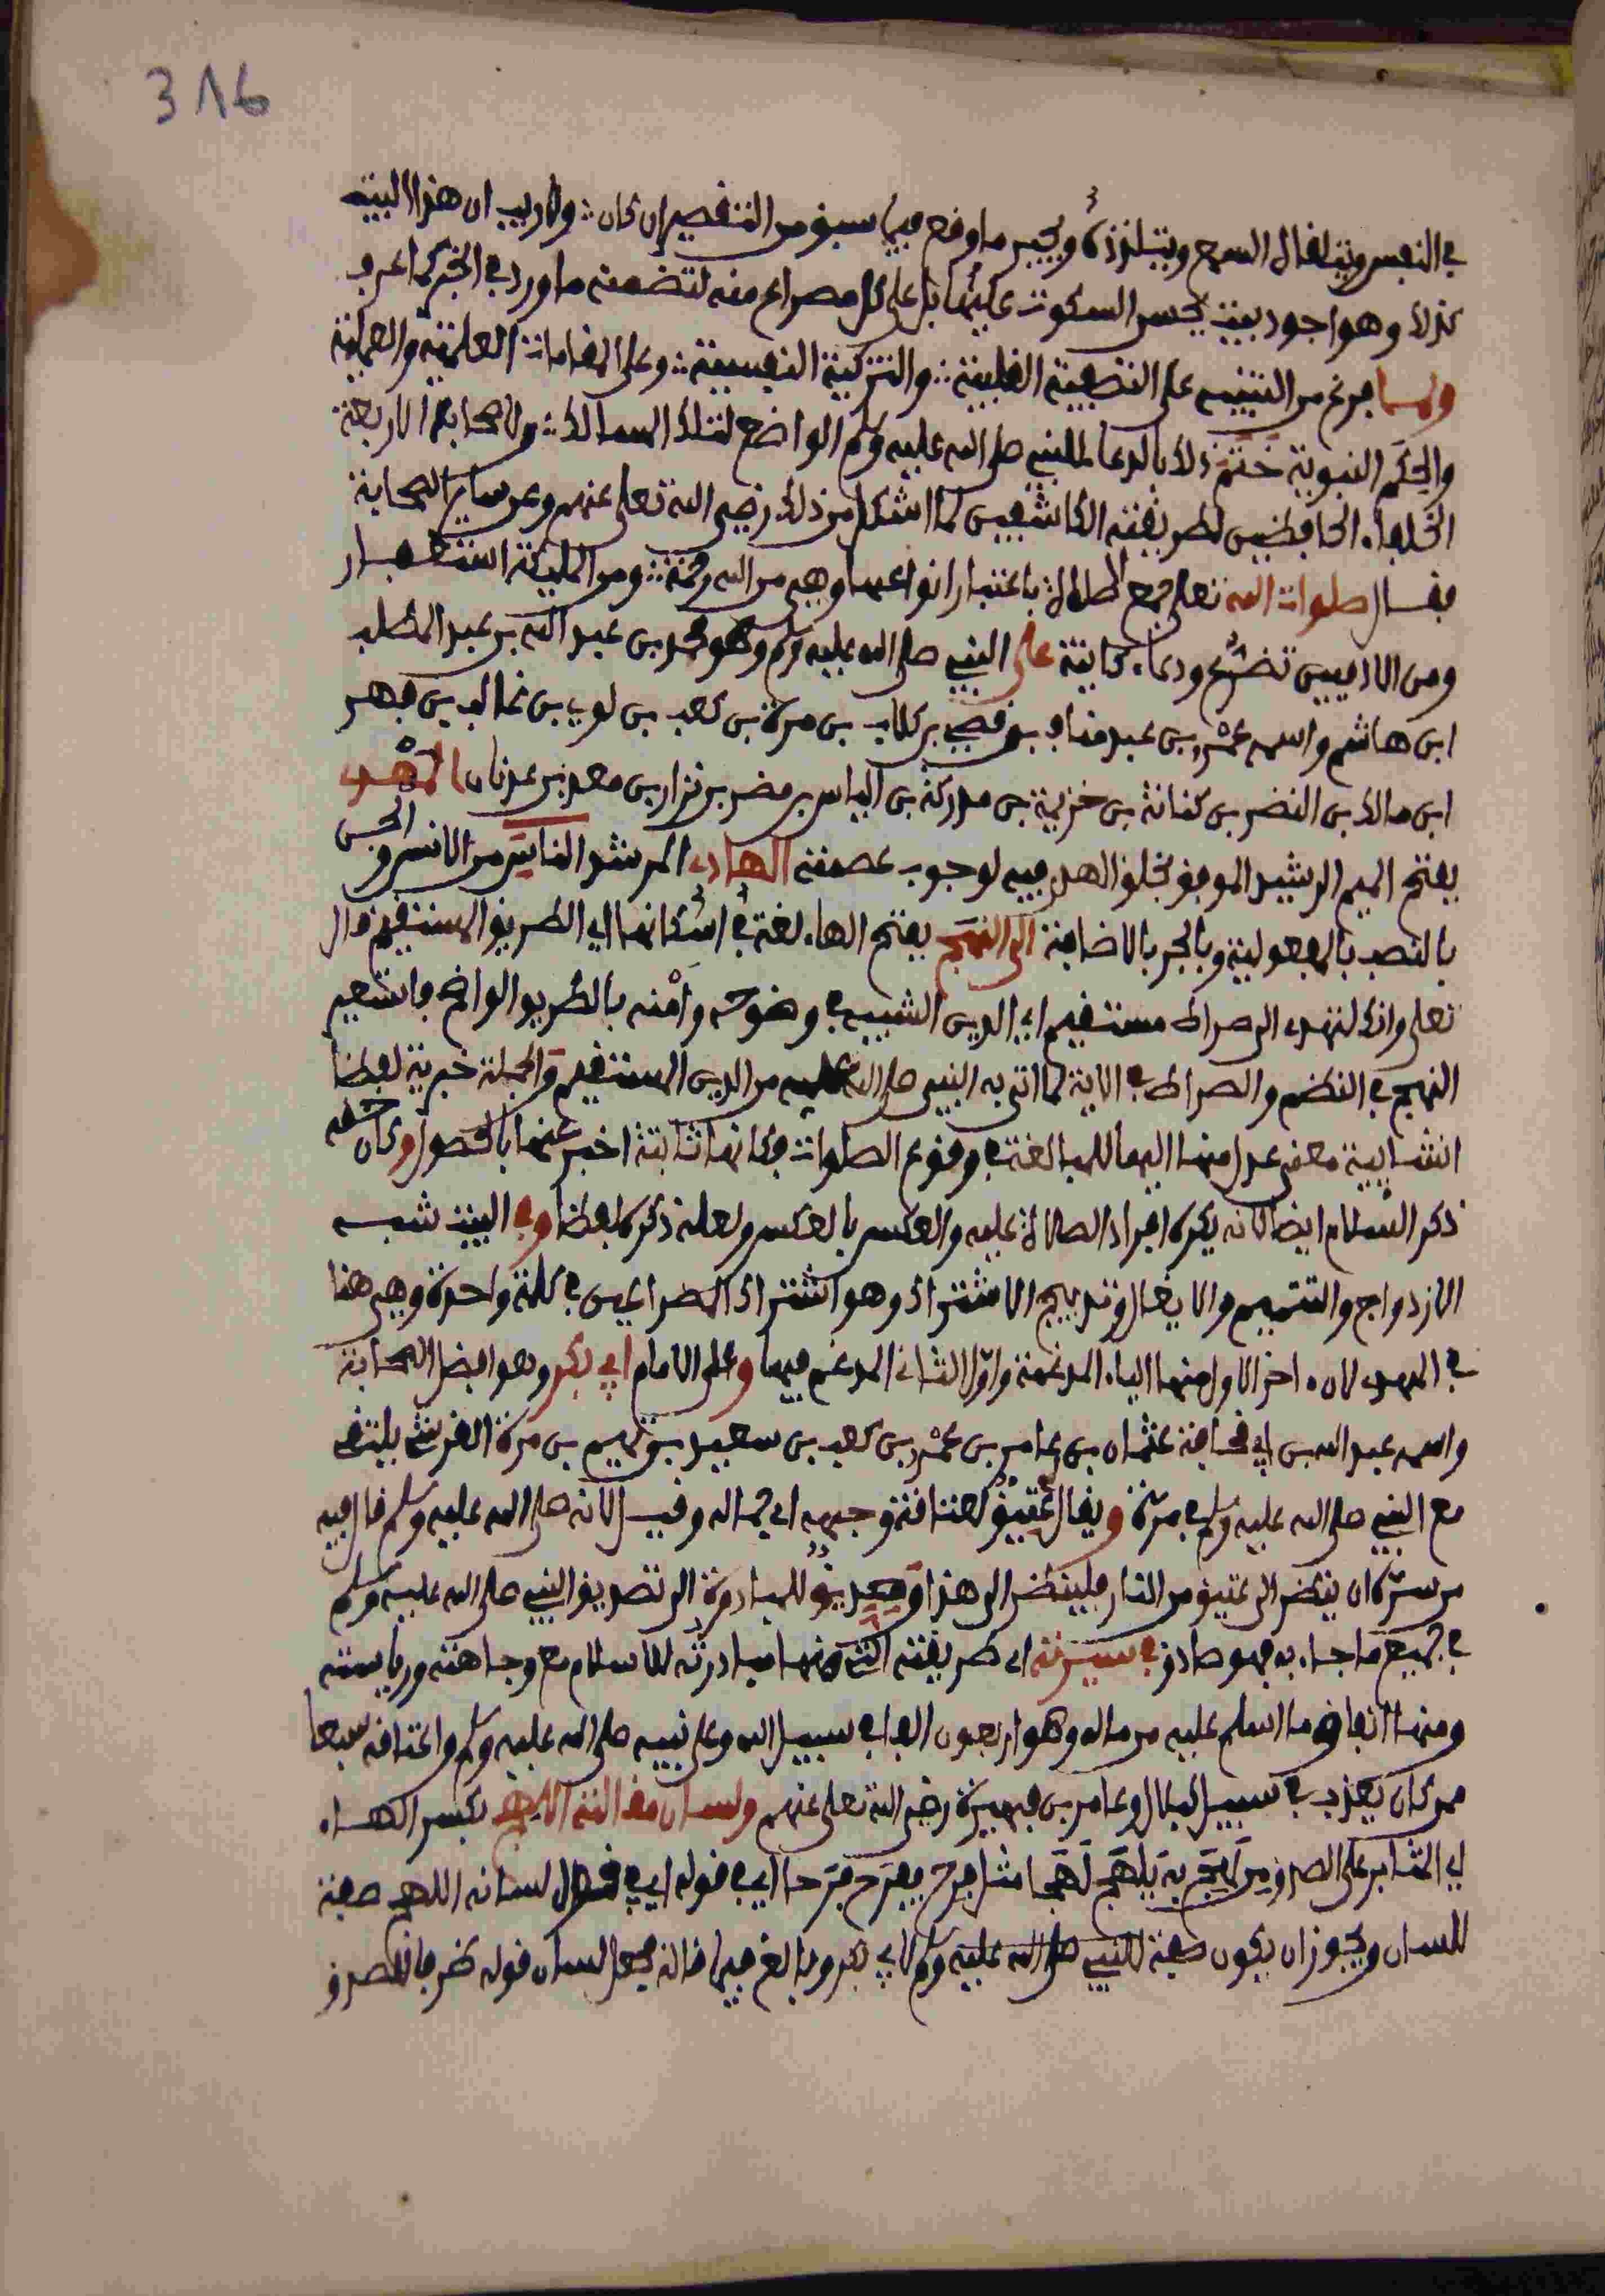 3 ۸ 6
في النفس ويتلقاه السمع ويتلذذه ويجبر ما وقع فيما سبق من التقصير إن كان ∴ ولا ريب ان هذا البيت
كذلك وهو اجود بيت يحسن السكوت عليه بل على كل مصراع منه لتضمنه ما ورد في الخبر كما اعرف
ولما فرغ من التنبيه على التصفية القلبية ∴ والتزكية النفسية ∴ وعلى المقامات العلمية والعملية
والحكم النبوية ختم ذلك بالدعا للنبي صلى الله عليه وسلم الواضع لتلك المسالك ∴ ولاصحابه الاربعة
الخلفاء الحافظين لطريقته الكاشفين لما اشكل من ذلك رضي الله تعلى عنهم وعن ساير الصحابة
فقال صلوات الله تعلى جمع الصلاة باعتبار انواعها وهي من الله رحمة ∴ ومن المليكة استغفار
ومن الادميين تضرع ودعاء كاينة على النبي صلى الله عليه وسلم وهو محمد بن عبد الله بن عبد المطلب
ابن هاشم واسمه عمرو بن عبد مناف بن قصي بن كلاب بن مرة بن كعب بن لوي بن غالب بن فهر
ابن مالك بن النضر بن كنانة بن خزيمة بن مدركة بن الياس بن مضر بن نزار بن معد بن عدنان المهدي
بفتح الميم الرشيد الموفق بخلق الهدى فيه لوجوب عصمته الهادي المرشد الناس من الانس والجن
بالنصب بالمفعولية وبالجر بالاضافة الى النهج بفتح الهاء لغة في اسكانها اي الطريق المستقيم قال
تعلى وانك لتهدي الى صراط مستقيم اي الدين الشبيه في وضوحه وامنه بالطريق الواضح واستعير
النهج في النظم والصراط في الاية لما اتى به النبي صلى الله عليه من الدين المستقيم والجملة خبرية لفظا
انشايية معنى عدل منها اليها للمبالغة في وقوع الصلوات وكانها ثابتة اخبر عنها بالحصول وكان حقه
ذكر السلام ايضا لانه يكره افراد الصلاة عليه والعكس بالعكس ولعله ذكره لفظا وفي البيت شبه
الازدواج والتتميم والايغال وتدبيج الاشتراك وهو اشتراك المصراعين في كلمة واحدة وهي هنا
في المهدي لان اخر الاول منها الياء المدغمة واول الثاني المدغم فيها وعلى الامام ابي بكر وهو افضل الصحابة
واسمه عبد الله بن ابي قحافة عثمان بن عامر بن عمرو بن كعب بن سعيد بن تيم بن مرة القرشي يلتقي
مع النبي صلى الله عليه وسلم في مرة ويقال عتيق لعتاقة وجهه اي جماله وقيل لانه صلى الله عليه وسلم قال فيه
من سره ان ينظر الى عتيق من النار فلينظر الى هذا وصديق للمبادرة الى تصديق النبي صلى الله عليه وسلم
في جميع ما جاء به فهو صادق في سيرته اي طريقته التي منها مبادرته للاسلام مع وجاهته ورياسته
ومنها انفاقه ما اسلم عليه من ماله وهو اربعون الفا في سبيل الله وعلى نبيه صلى الله عليه وسلم واعتاقه سبعا
ممن كان يعذب في سبيل الله كبلال وعامر بن فهيرة رضي الله تعلى عنهم ولسان مقالته اللهج بكسر الهاء
اي المثابر على الصدق من لهج به يلهج لهجا مثل فرح يفرح فرحا اي في قوله اي في لسانه اللهج صفة
للسان ويجوز ان يكون صفة للنبي صلى الله عليه وسلم لابي بكر وبالغ فيما قاله فجعل لسان قوله ظرفا للصدق